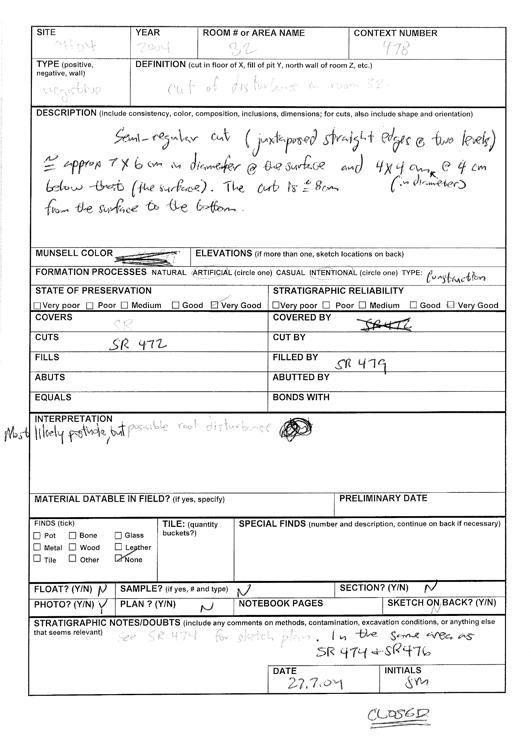 SITE YEAR ROOM # or AREA NAME CONTEXT NUMBER
2004 32 478
TYPE (positive, negative, wall) DEFINITION (cut in floor of X, fill of pit Y, north wall of room Z, etc.)
negative Cut of disturbance in room 32.
DESCRIPTION (include consistency, color, composition, inclusions, dimensions; for cuts, also include shape and orientation)
Semi-regular cut (juxtaposed straight edges @ two levels)
≅ approx 7X6 cm in diameter @ the surface and 4X4 cm @ 4 cm
below that (the surface). The cut is ≅ 8cm (in diameter)
from the surface to the bottom.
MUNSELL COLOR ELEVATIONS (if more than one, sketch locations on back)
FORMATION PROCESSES NATURAL ARTIFICIAL (circle one) CASUAL INTENTIONAL (circle one) TYPE: Construction
STATE OF PRESERVATION STRATIGRAPHIC RELIABILITY
Very poor Poor Medium Good Very Good Very poor Poor Medium Good Very Good
COVERS SR COVERED BY SR 472
CUTS SR 472 CUT BY
FILLS FILLED BY SR 479
ABUTS ABUTTED BY
EQUALS BONDS WITH
INTERPRETATION
Most likely posthole, but possible root disturbance
MATERIAL DATABLE IN FIELD? (if yes, specify) PRELIMINARY DATE
FINDS (tick) TILE: (quantity buckets?) SPECIAL FINDS (number and description, continue on back if necessary)
Pot Bone Glass
Metal Wood Leather
Tile Other None
FLOAT? (Y/N) N SAMPLE? (if yes, # and type) N SECTION? (Y/N) N
PHOTO? (Y/N) Y PLAN ? (Y/N) N NOTEBOOK PAGES SKETCH ON BACK? (Y/N)
STRATIGRAPHIC NOTES/DOUBTS (include any comments on methods, contamination, excavation conditions, or anything else
that seems relevant) See SR 474 for sketch plan. In the same area as
SR 474 + SR476
DATE INITIALS
27.7.04 SM
CLOSED